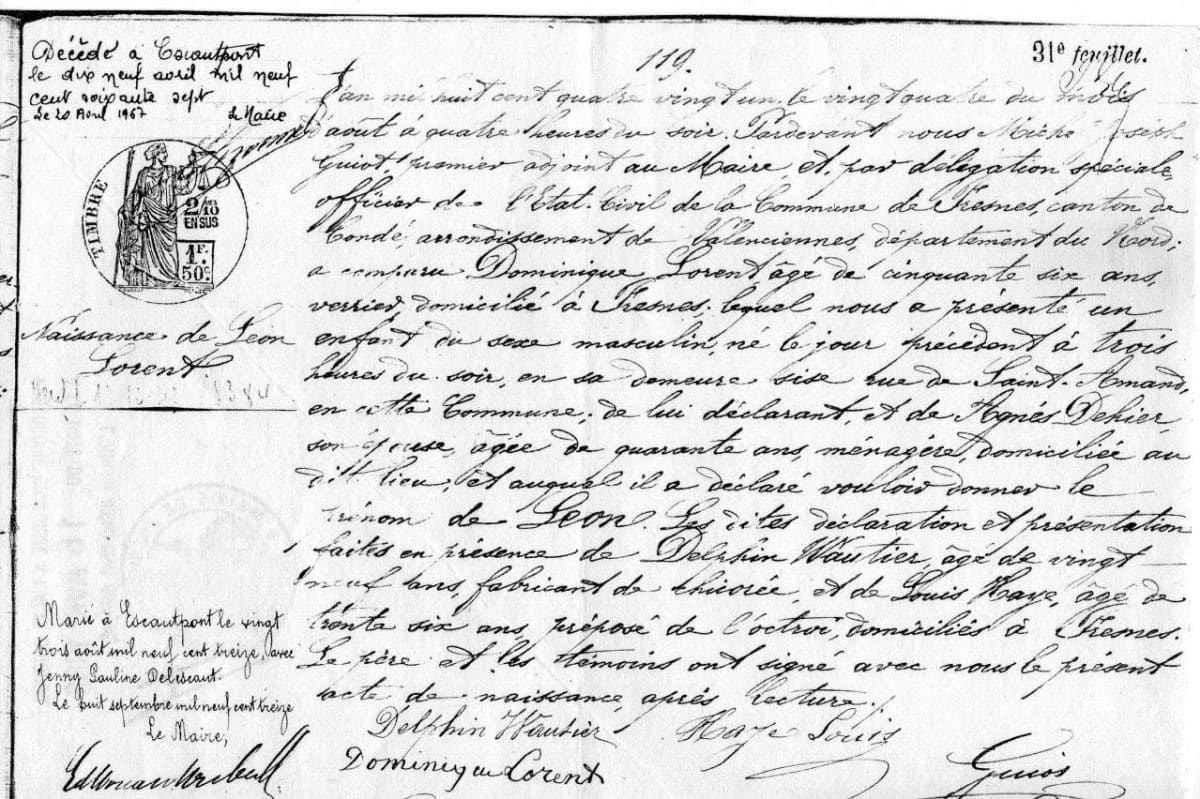 119.
31e feuillet.
Décédé à Escautpont
le dix neuf avril mil neuf
cent soixante sept
Le 20 Avril 1967 le Maire
TIMBRE
2/10
EN SUS
1F.
50c
Naissance de Léon
Lorent
Marié à Escautpont le vingt
trois août mil neuf cent treize, avec
Jenny Pauline Delescaut.
Le huit septembre mil neuf cent treize
Le Maire,
L'an mil huit cent quatre vingt un, le vingt quatre du mois
d'août à quatre heures du soir. Pardevant nous Michel Joseph
Guiot, premier adjoint au Maire, et, par délégation spéciale,
officier de l'Etat-Civil de la Commune de Fresnes, canton de
Condé, arrondissement de Valenciennes, département du Nord;
a comparu Dominique Lorent, âgé de cinquante six ans,
verrier, domicilié à Fresnes, lequel nous a présenté un
enfant du sexe masculin, né le jour précédent à trois
heures du soir, en sa demeure sise rue de Saint-Amand,
en cette Commune, de lui déclarant, et de Agnès Dehier,
son épouse, âgée de quarante ans, ménagère, domiciliée au
dit lieu, et auquel il a déclaré vouloir donner le
prénom de Léon. Les dites déclaration et présentation
faites en présence de Delphin Wautier, âgé de vingt
neuf ans, fabricant de chicorée, et de Louis Haye, âgé de
trente six ans, préposé de l'octroi, domiciliés à Fresnes.
Le père et les témoins ont signé avec nous le présent
acte de naissance, après lecture.
Delphin Wautier Haye Louis
Dominique Lorent Guiot